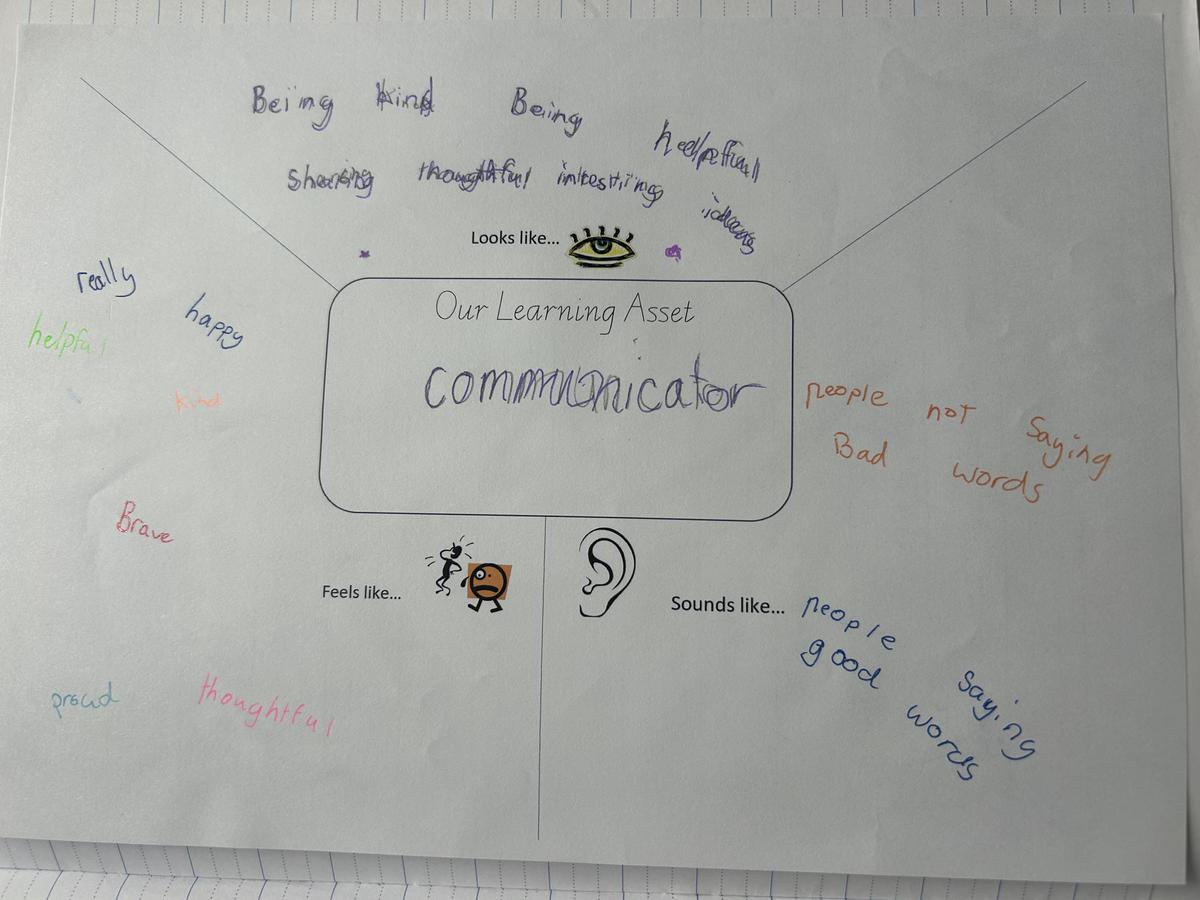 Being kind Being helpful
sharing thoughtful intresting ideas
Looks like...
Our Learning Asset
communicator
really happy
helpful
kind
Brave
Feels like...
proud thoughtful
people not Saying
Bad words
Sounds like...
people Saying
good words